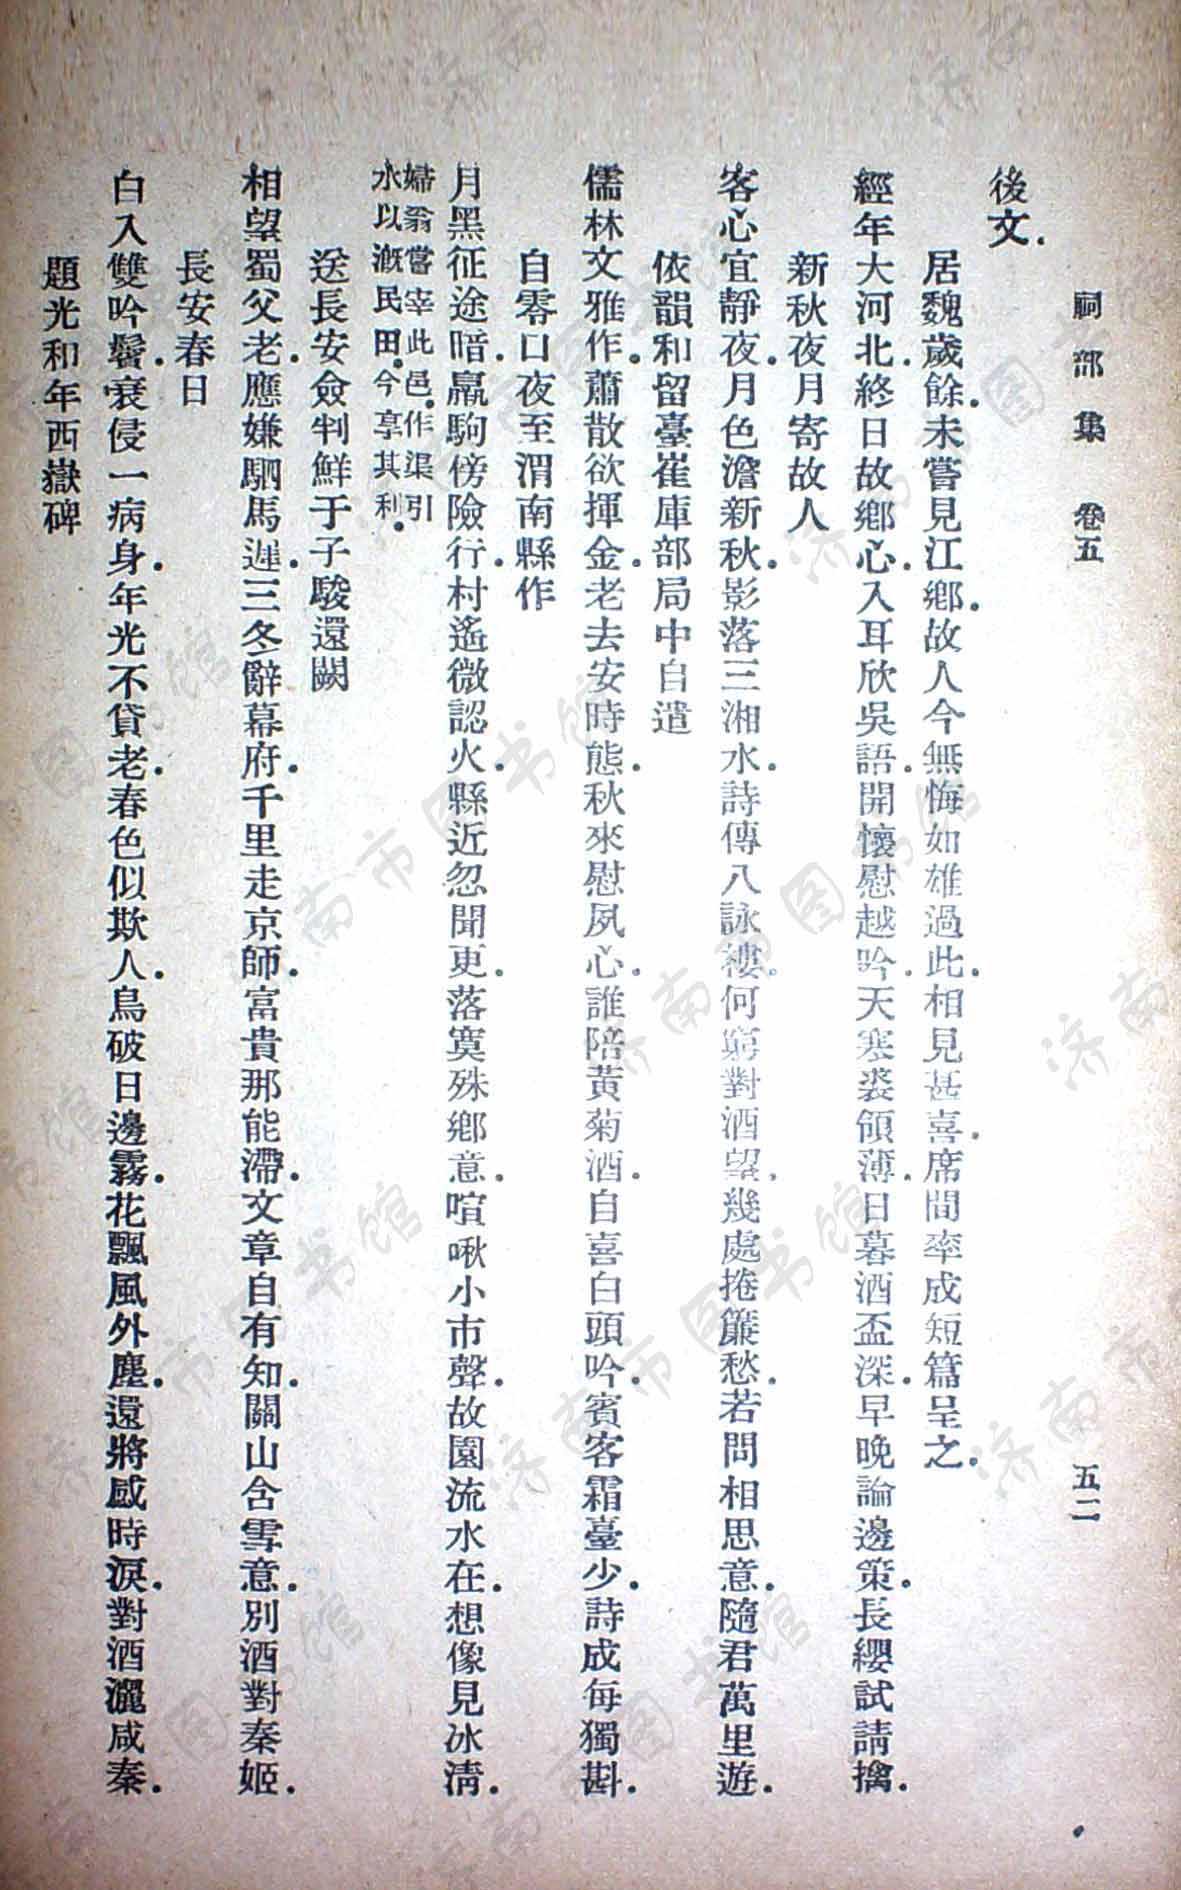 祠部集　卷五　五二
後文．
居魏歲餘．未嘗見江鄉．故人今無悔如雄過此．相見甚喜．席間率成短篇呈之．
經年大河北．終日故鄉心．入耳欣吳語．開懷慰越吟．天寒裘領薄．日暮酒盃深．早晚論邊策．長纓試請擒．
新秋夜月寄故人
客心宜靜夜．月色澹新秋．影落三湘水．詩傳八詠樓．何窮對酒望．幾處捲簾愁．若問相思意．隨君萬里遊．
依韻和留臺崔庫部局中自遣
儒林文雅作．蕭散欲揮金．老去安時態．秋來慰夙心．誰陪黃菊酒．自喜白頭吟．賓客霜臺少．詩成每獨斟．
自零口夜至渭南縣作
月黑征途暗．羸駒傍險行．村遙微認火．縣近忽聞更．落寞殊鄉意．喧啾小市聲．故園流水在．想像見冰清．
婦翁嘗宰此邑．作渠引
水以漑民田．今享其利．
送長安僉判鮮于子駿還闕
相望蜀父老．應嫌駟馬遲．三冬辭幕府．千里走京師．富貴那能滯．文章自有知．關山含雪意．別酒對秦姬．
長安春日
白入雙吟鬢．衰侵一病身．年光不貸老．春色似欺人．鳥破日邊霧．花飄風外塵．還將感時淚．對酒灑咸秦．
題光和年西嶽碑
济南市图书馆